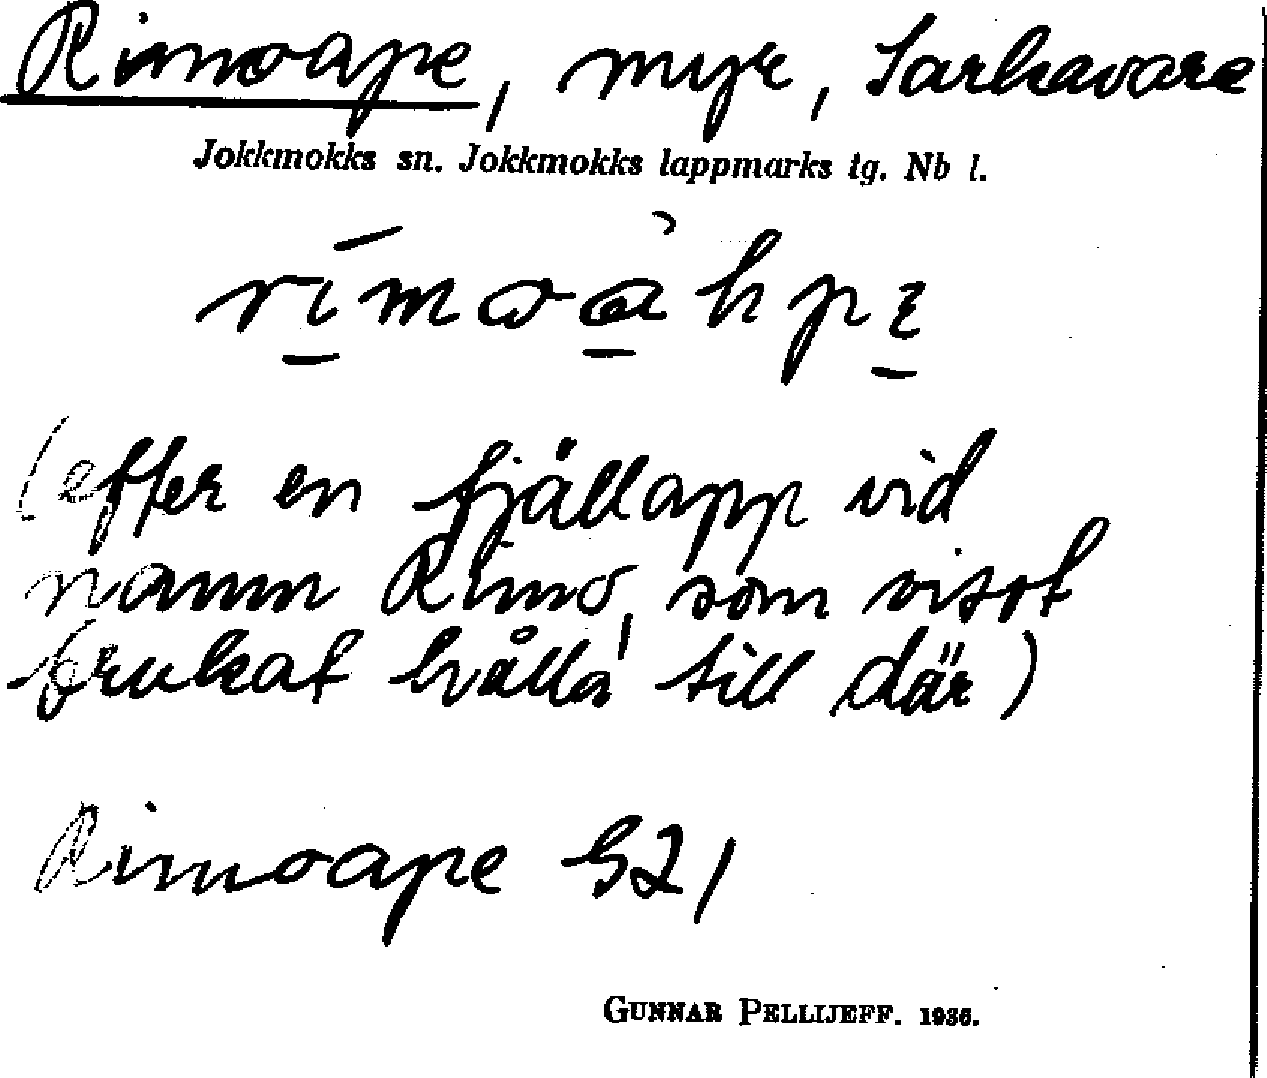 Rimoape, myr, Sarkavare
Jokkmokks sn. Jokkmokks lappmarks tg. Nb l.
(efter en fjällapp vid
namn Rimo, som visst
brukat hålla till där)
Rimoape
GUNNAR PELLIJEFF. 1936.